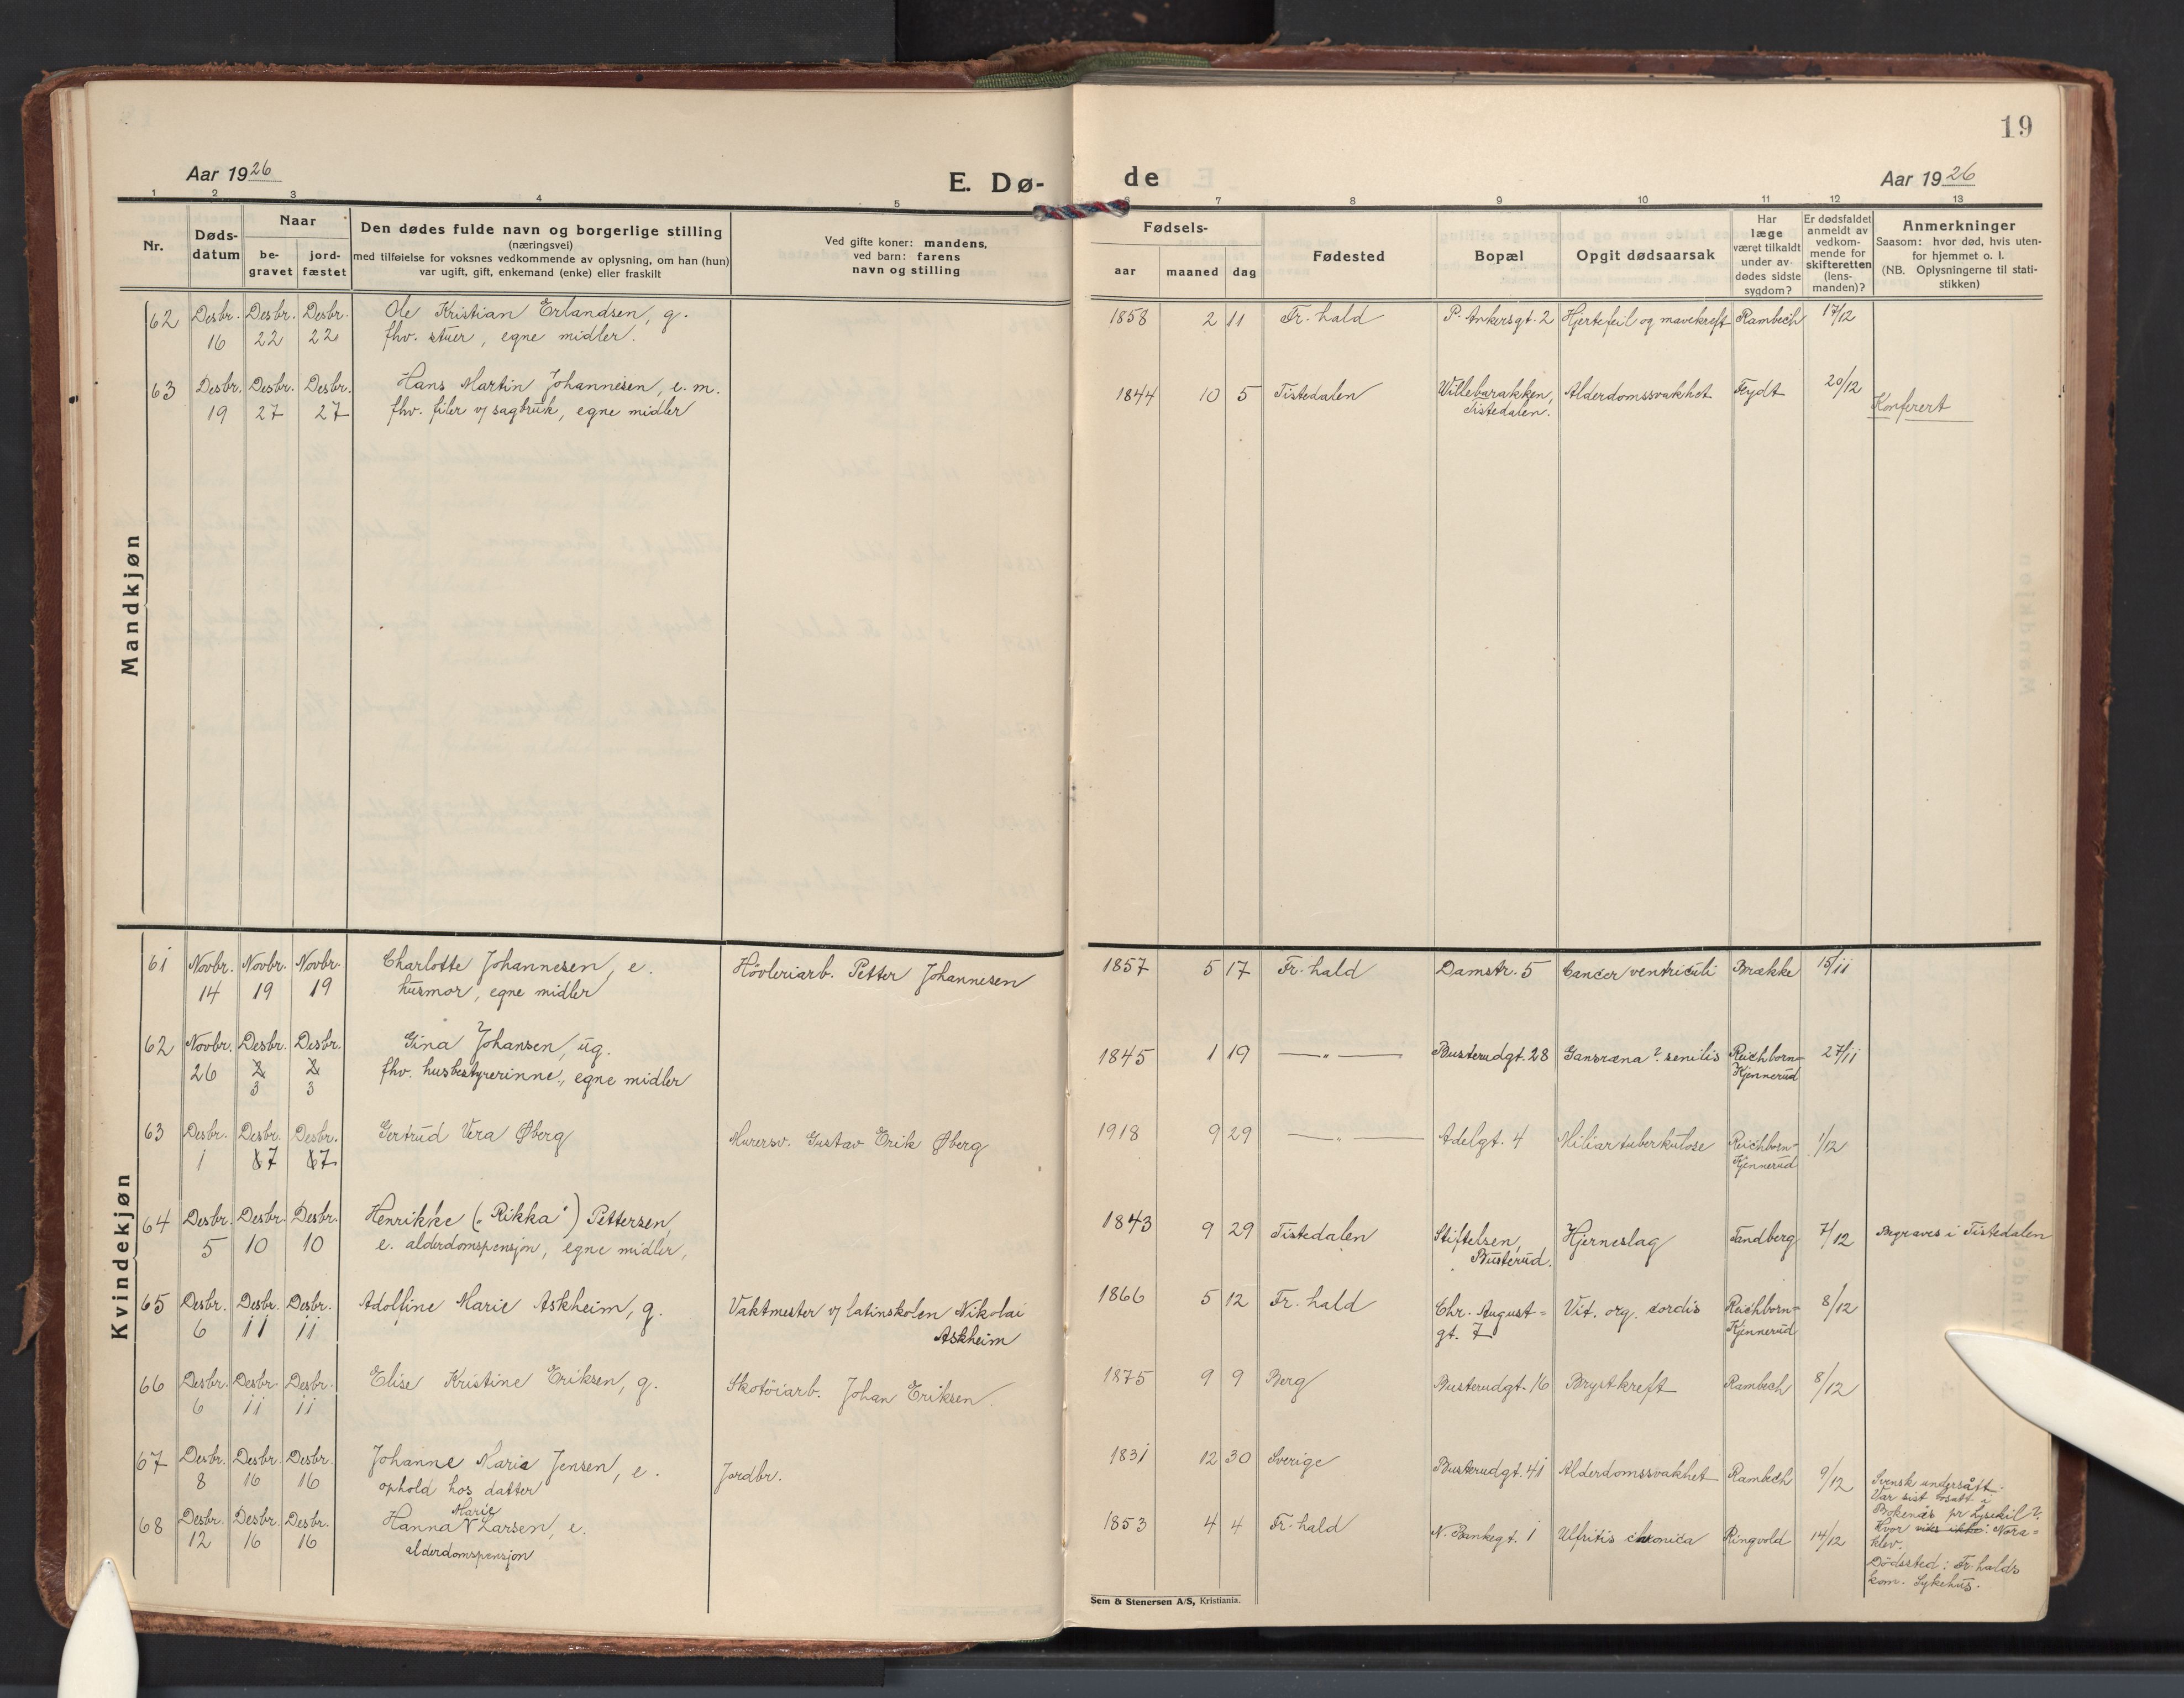 19
Aar 1926
E. Dø-
de
Aar 1926
1 2 3 4 5 6 7 8 9 10 11 12 13
Nr.
Døds-
datum
Naar
be-
gravet
jord-
fæstet
Den dødes fulde navn og borgerlige stilling
(næringsvei)
med tilføielse for voksnes vedkommende av oplysning, om han (hun)
var ugift, gift, enkemand (enke) eller fraskilt
Ved gifte koner: mandens,
ved barn: farens
navn og stilling
Fødsels-
aar maaned dag
Fødested
Bopæl
Opgit dødsaarsak
Har
læge
været tilkaldt
under av-
dødes sidste
sygdom?
Er dødsfaldet
anmeldt av
vedkom-
mende for
skifteretten
(lens-
manden)?
Anmerkninger
Saasom: hvor død, hvis uten-
for hjemmet o. l.
(NB. Oplysningerne til stati-
stikken)
Mandkjøn
62 Desbr. Desbr. Desbr. Ole Kristian Erlandsen, g. 1858 2 11 Fr. hald P. Ankersgt. 2 Hjertefeil og mavekreft Rambech 17/12
16 22 22 fhv. stuer, egne midler.
63 Desbr. Desbr. Desbr. Hans Martin Johannesen, e. m. 1844 10 5 Tistedalen Willebarakken, Alderdomssvakhet Feydt 20/12
19 27 27 fhv. filer v/ sagbruk, egne midler Tistedalen. Konferert
Kvindekjøn
61 Novbr. Novbr. Novbr. Charlotte Johannesen, e. Høvleriarb. Petter Johannesen 1857 5 17 Fr. hald Damstr. 5 Cancer ventriculi Brække 15/11
14 19 19 husmor, egne midler
62 Novbr. Desbr. Desbr. Gina Johansen, ug. 1845 1 19 —„— Busterudgt. 28 Gansræna? senilis Reichborn- 27/11
26 2 2 fhv. husbestyrerinne, egne midler Kjennerud
3 3
63 Desbr. Desbr. Desbr. Gertrud Vera Øberg Murersv. Gustav Erik Øberg 1918 9 29 —„— Adelgt. 4 Miliartuberkulose Reichborn- 1/12
1 67 67 Kjennerud
64 Desbr. Desbr. Desbr. Henrikke („Rikka") Pettersen, 1843 9 29 Tistedalen Stiftelsen, Hjerneslag Tandberg 7/12 Begraves i Tistedalen
5 10 10 e. alderdomspensjon, egne midler, Busterud.
65 Desbr. Desbr. Desbr. Adolfine Marie Askheim, g. Vaktmester v/ latinskolen Nikolai 1866 5 12 Fr. hald Chr. August- Vit. org. cordis Reichborn- 8/12
6 11 11 Askheim gt. 7 Kjennerud
66 Desbr. Desbr. Desbr. Elise Kristine Eriksen, g. Skotøiarb. Johan Eriksen. 1875 9 9 Berg Busterudgt. 16 Brystkreft Rambech 8/12
6 11 11
67 Desbr. Desbr. Desbr. Johanne Marie Jensen, e. Jordbr. 1831 12 30 Sverige Busterudgt. 41 Alderdomssvakhet Rambech 9/12 Svensk undersått.
8 16 16 ophold hos datter Var sist bosatt i
Bokenäs pr Lysekil?.
Hvor viks ikke: Nora-
klev.
68 Desbr. Desbr. Desbr. Hanna Marie Larsen, e. 1853 4 4 Fr. hald N. Bankegt. 1 Ulfritis chronica Ringvold 14/12 Dødssted: Fr. halds
12 16 16 alderdomspensjon kom. Sykehus.
Sem & Stenersen A/S, Kristiania.